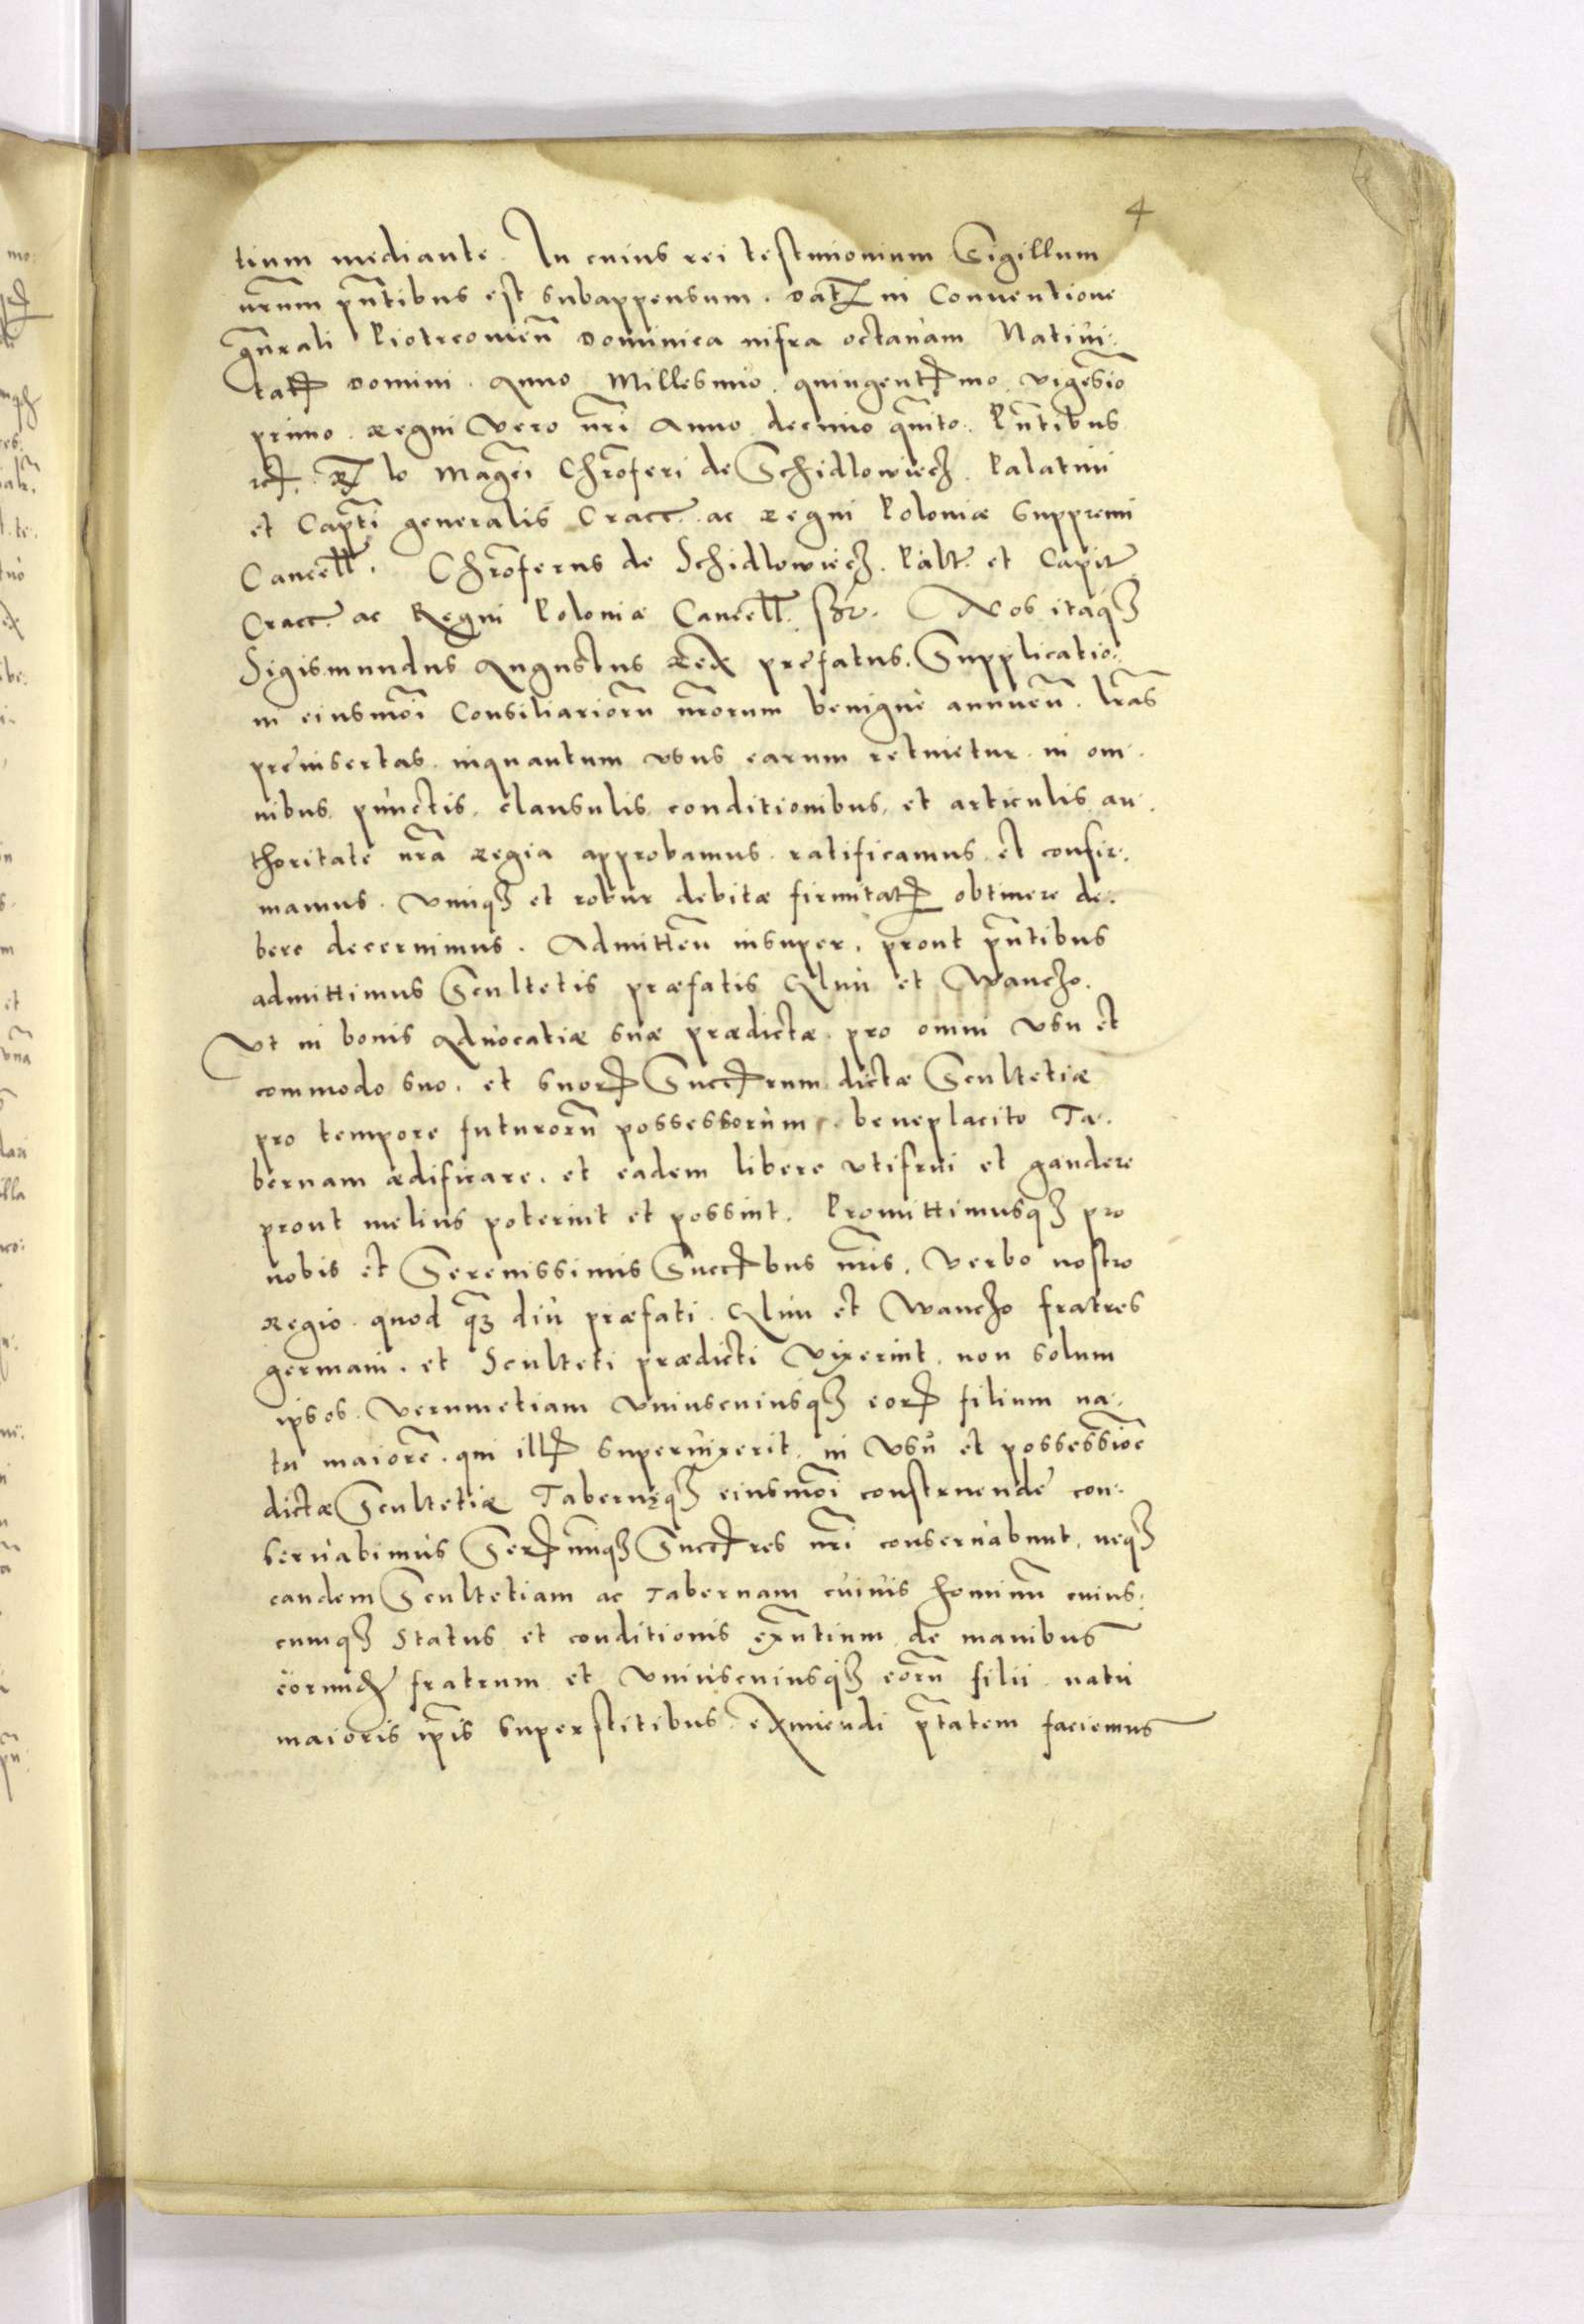 4
tium mediante. In cuius rei testimonium Sigillum
nr̃um pñtibus est subappensum. Dat in Conventione
gñrali Piotrcovieñ Dominica infra octavam Nativi:
tatis Domini. Anno Millesimo. quingentesimo. vigesio
primo. Regni Vero nr̃i Anno decimo quinto. Pñtibus
etc. Rel̃o Magci Chrõferi de Schidlowiecz. Palatini
et Capti generalis Cracc. ac Regni Poloniæ Suppremi
Cancell. Chrõferus de Schidlowiecz. Palt. et Capit
Cracc. ac Regni Poloniæ Cancell. sst. Nos itaqz
Sigismundus Augustus Rex prefatus. Supplicatio:
ni eiusmõi Consiliariorũ nr̃orum benigne annueñ. lr̃as
preinsertas. inquantum usus earum retinetur. in om:
nibus punctis. clausulis conditionibus. et articulis au:
thoritate nr̃a Regia approbamus. ratificamus. et confir:
mamus. Vimqz et robur debitæ firmitatis obtinere de:
bere decernimus. Admitteñ insuper. prout pñtibus
admittimus Scultetis præfatis Klim et Wanczo.
Ut in bonis Advocatiæ suæ prædictæ. pro omni usu et
commodo suo. et suorum Successorum dictæ Scultetiæ
pro tempore futurorũ possessorum. beneplacito Ta:
bernam ædificare. et eadem libere utifrui et gaudere
prout melius poterint et possint. Promittimusqz pro
nobis et Serenissimis Successoribus nr̃is. Verbo nostro
Regio. quod qz diu præfati. Klim et Wanczo fratres
germani. et Sculteti prædicti Vixerint. non solum
ipsos. verumetiam Uniuscuiusqz eorum filium na:
tu maiorẽ. qui illis supervixerit. in Usu et possessiõe
dictæ Scultetiæ Tabernęqz eiusmõi construende con:
servabimus Serenissimiqz Successores nr̃i conservabunt. neqz
eandem Scultetiam ac Tabernam cuivis hominũ cuius:
cumqz Status et conditionis exñtium de manibus
eorundem fratrum et Uniuscuiusqz eorũ filii natu
maioris ip̃is superstitibus. eximendi p̃tatem faciemus